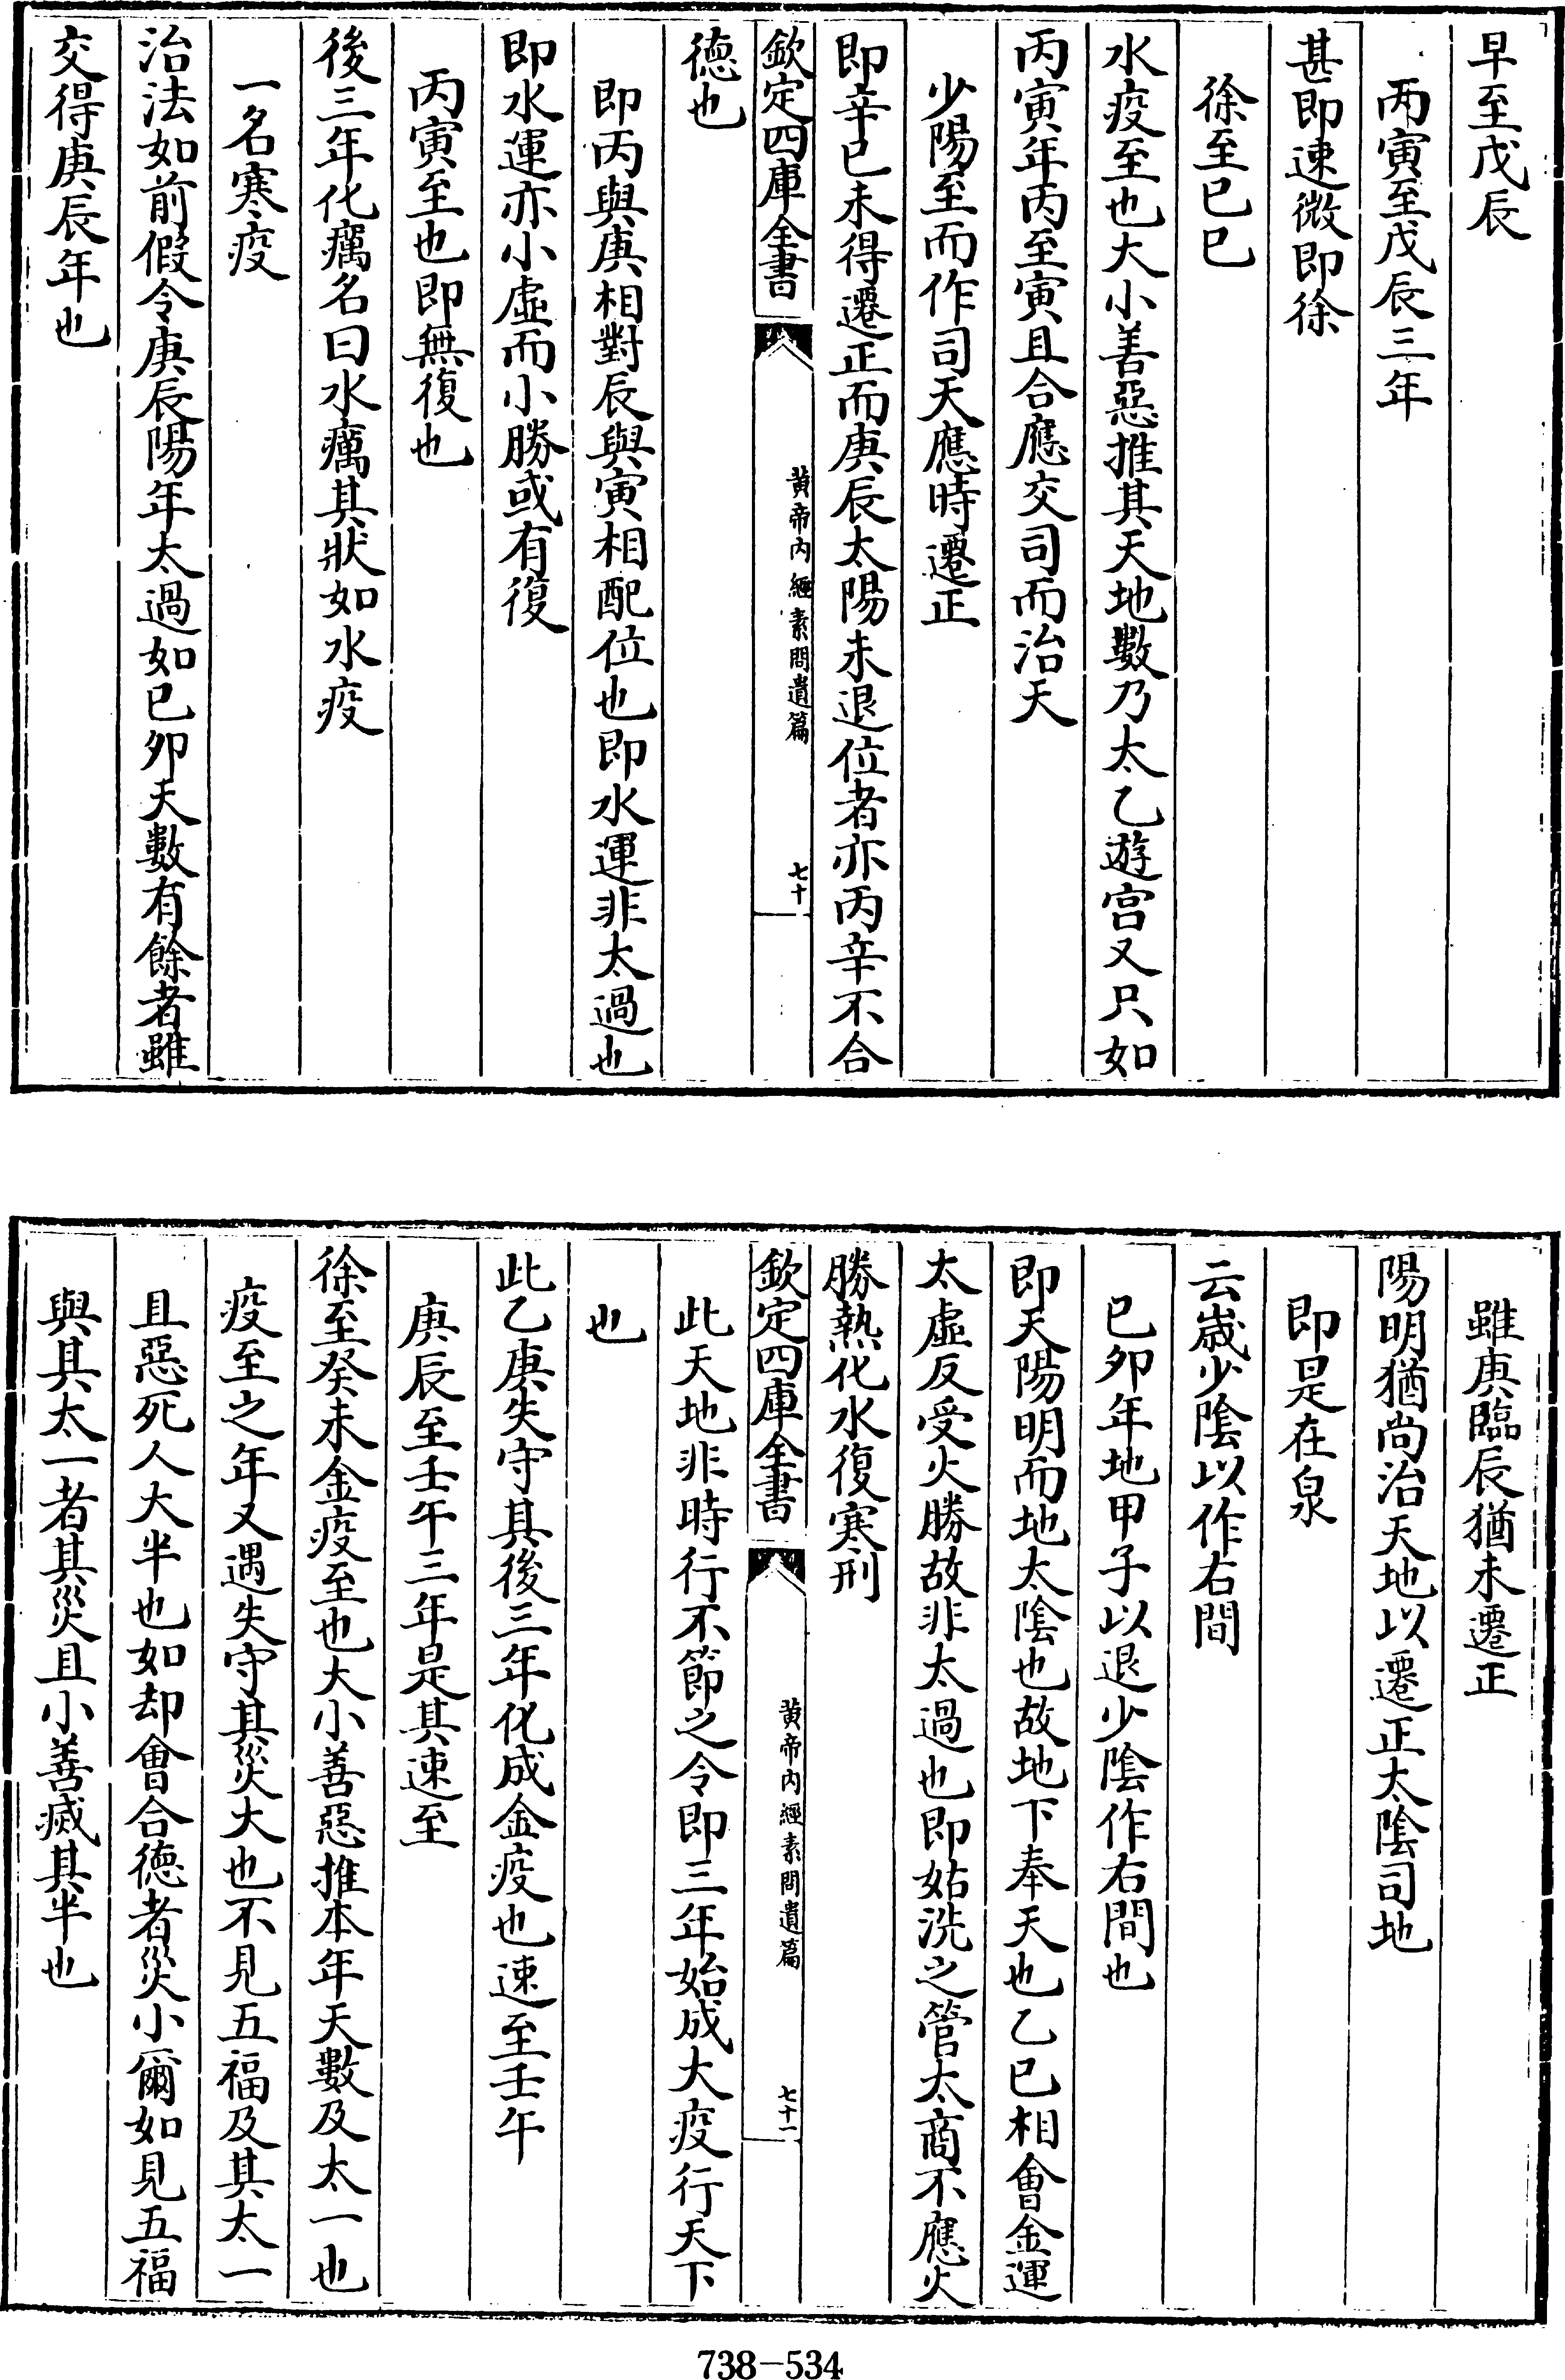 早至戊辰
丙寅至戊辰三年
甚即速微即徐
徐至已巳
水疫至也大小善惡推其天地數乃太乙遊宫又只如
丙寅年丙至寅且合應交司而治天
少陽至而作司天應時遷正
即辛巳未得遷正而庚辰太陽未退位者亦丙辛不合
欽定四庫全書
黄帝内經素問遺篇
七十
德也
即丙與庚相對辰與寅相配位也即水運非太過也
即水運亦小虛而小勝或有復
丙寅至也即無復也
後三年化癘名曰水癘其狀如水疫
一名寒疫
治法如前假令庚辰陽年太過如已夘天數有餘者雖
交得庚辰年也
雖庚臨辰猶未遷正
陽明猶尚治天地以遷正太陰司地
即是在泉
云歲少陰以作右間
已夘年地甲子以退少陰作右間也
即天陽明而地太陰也故地下奉天也乙巳相會金運
太虛反受火勝故非太過也即姑洗之管太商不應火
勝熱化水復寒刑
欽定四庫全書
黄帝内經素問遺篇
七十一
此天地非時行不節之令即三年始成大疫行天下
也
此乙庚失守其後三年化成金疫也速至壬午
庚辰至壬午三年是其速至
徐至癸未金疫至也大小善惡推本年天數及太一也
疫至之年又遇失守其災大也不見五福及其太一
且惡死人大半也如却會合德者災小爾如見五福
與其太一者其災且小善滅其半也
738-534